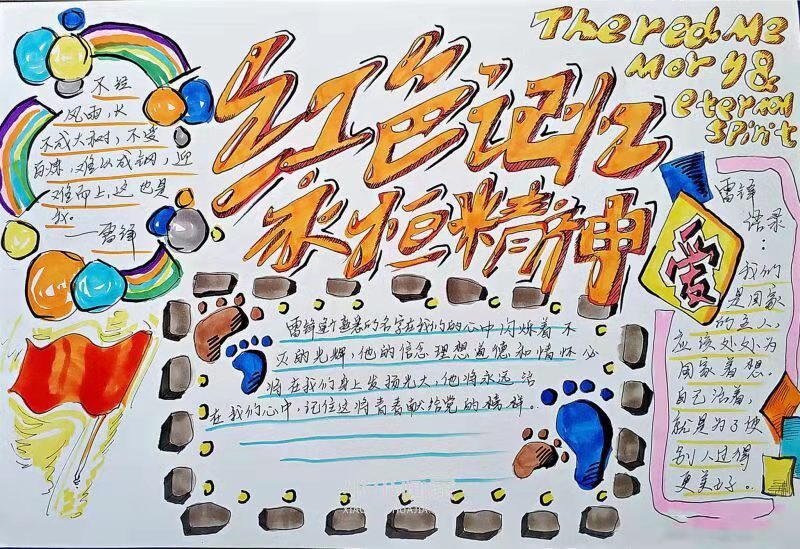 Thered Me
Mory &
eternal
spirit
红色记忆
永恒精神
不经
风雨,长
不成大树,不受
百炼,难以成钢,迎
难而上,这也是
我。
——雷锋
雷锋这个熟悉的名字在我们的心中闪烁着不
灭的光辉,他的信念理想道德和情怀必
将在我们身上发扬光大,他将永远活
在我们心中,记住这将青春献给党的榜样。
爱
雷锋
语录:
我们
是国家
的主人,
应该处处为
国家着想.
自己活着,
就是为了使
别人过得
更美好。